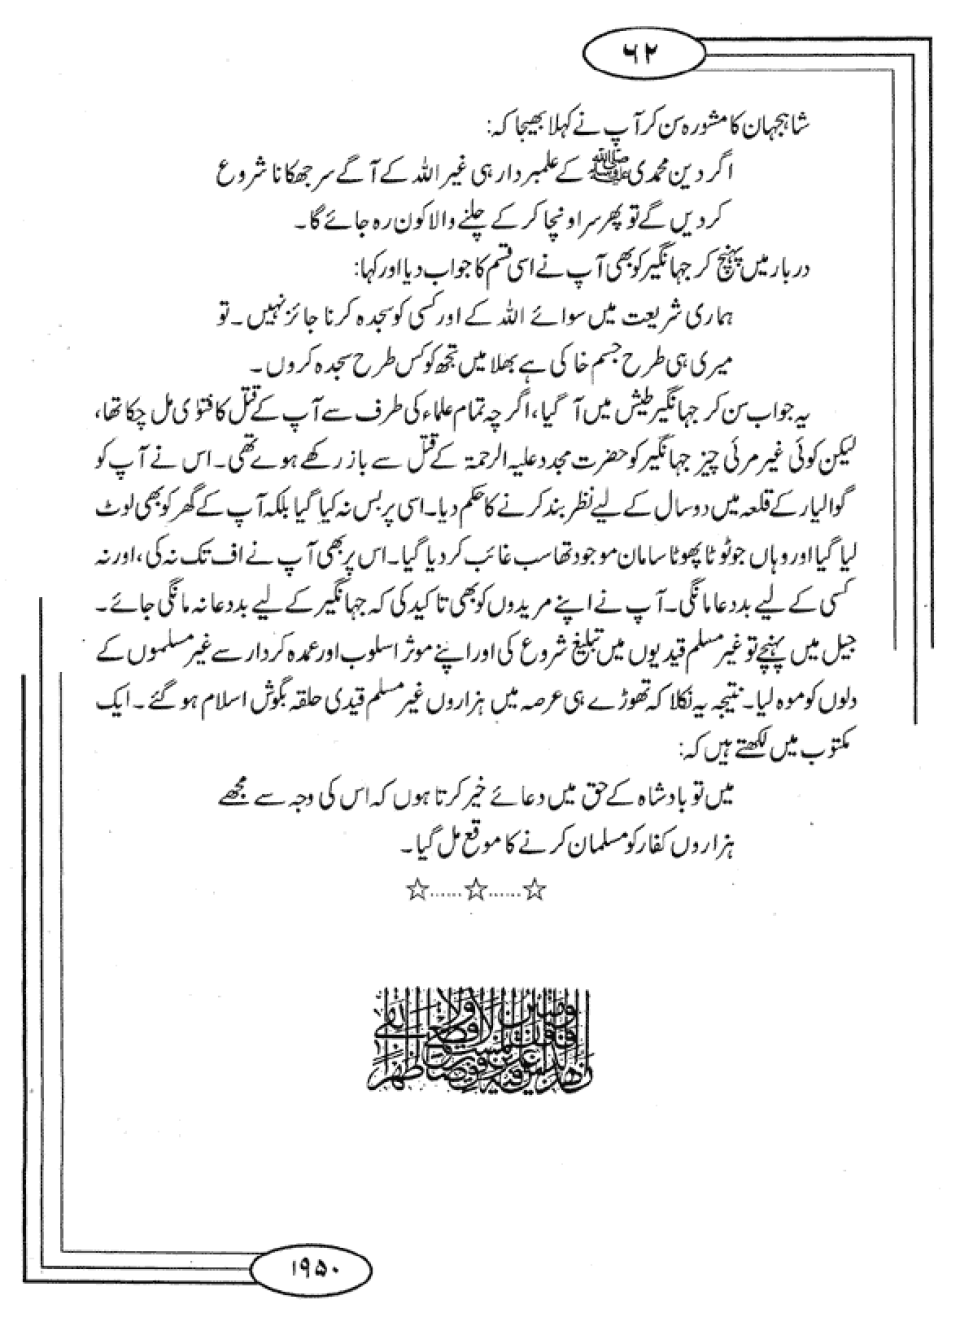 ۶۲
شاہجہان کا مشورہ سن کر آپ نے کہلا بھیجا کہ:
اگر دین محمدی ﷺ کے علمبردار ہی غیر اللہ کے آگے سر جھکانا شروع
کر دیں گے تو پھر سر اونچا کر کے چلنے والا کون رہ جائے گا۔
دربار میں پہنچ کر جہانگیر کو بھی آپ نے اسی قسم کا جواب دیا اور کہا:
ہماری شریعت میں سوائے اللہ کے اور کسی کو سجدہ کرنا جائز نہیں۔ تو
میری ہی طرح جسم خاکی ہے بھلا میں تجھ کو کس طرح سجدہ کروں۔
یہ جواب سن کر جہانگیر طیش میں آ گیا، اگرچہ تمام علماء کی طرف سے آپ کے قتل کا فتوٰی مل چکا تھا،
لیکن کوئی غیر مرئی چیز جہانگیر کو حضرت مجدد علیہ الرحمۃ کے قتل سے باز رکھے ہوے تھی۔ اس نے آپ کو
گوالیار کے قلعہ میں دو سال کے لیے نظر بند کرنے کا حکم دیا۔ اسی پر بس نہ کیا گیا بلکہ آپ کے گھر کو بھی لوٹ
لیا گیا اور وہاں جو ٹوٹا پھوٹا سامان موجود تھا سب غائب کر دیا گیا۔ اس پر بھی آپ نے اف تک نہ کی، اور نہ
کسی کے لیے بددعا مانگی۔ آپ نے اپنے مریدوں کو بھی تاکید کی کہ جہانگیر کے لیے بددعا نہ مانگی جائے۔
جیل میں پہنچے تو غیر مسلم قیدیوں میں تبلیغ شروع کی اور اپنے موثر اسلوب اور عمدہ کردار سے غیر مسلموں کے
دلوں کو موہ لیا۔ نتیجہ یہ نکلا کہ تھوڑے ہی عرصہ میں ہزاروں غیر مسلم قیدی حلقہ بگوش اسلام ہو گئے۔ ایک
مکتوب میں لکھتے ہیں کہ:
میں تو بادشاہ کے حق میں دعائے خیر کرتا ہوں کہ اس کی وجہ سے مجھے
ہزاروں کفار کو مسلمان کرنے کا موقع مل گیا۔
☆......☆......☆
۱۹۵۰